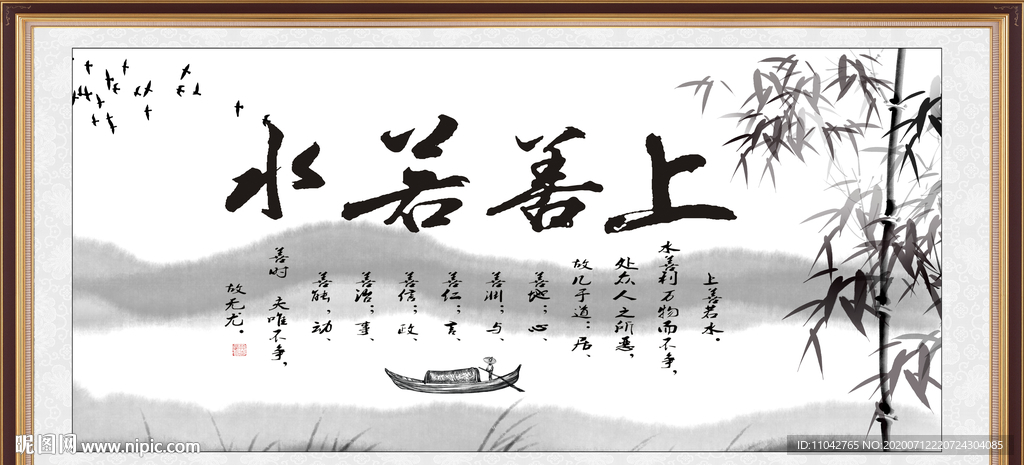 上善若水
上善若水。
水善利万物而不争，
处众人之所恶，
故几于道：居、
善地；心、
善渊；与、
善仁；言、
善信；政、
善治；事、
善能；动、
善时 夫唯不争，
故无尤。
昵图网 www.nipic.com
ID:11042765 NO:20200712220724304085